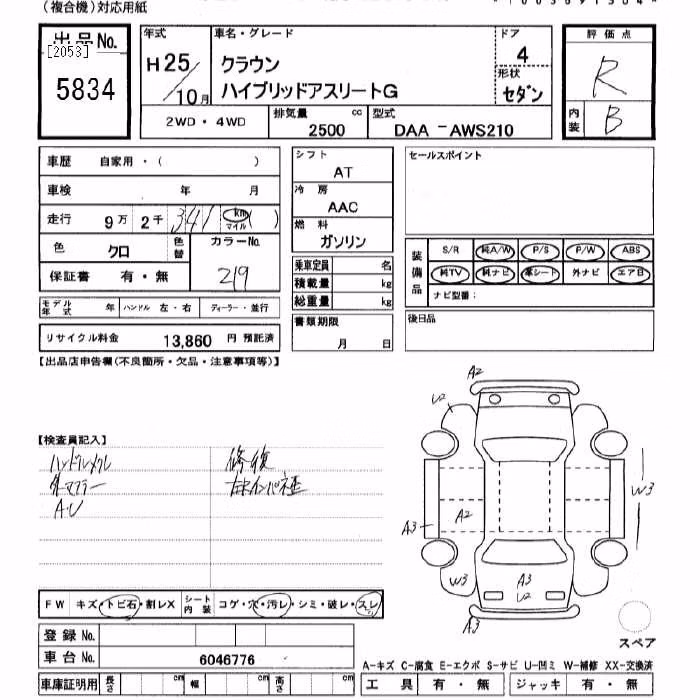 (複合機)対応用紙
出品No.
[2053]
5834
年式
H25/10月
車名・グレード
クラウン
ハイブリッドアスリートG
ドア
4
形状
セダン
評価点
R
内装
B
2WD・4WD
排気量
2500
cc
型式
DAA-AWS210
車歴 自家用・( )
車検 年 月
走行 9万 2千 341 km マイル ( )
色 クロ
色替
カラーNo.
219
保証書 有・無
モデル年式 年
ハンドル 左・右
ディーラー・並行
リサイクル料金 13,860 円 預託済
シフト
AT
冷房
AAC
燃料
ガソリン
乗車定員 名
積載量 kg
総重量 kg
書類期限
月 日
セールスポイント
装備品
S/R 純A/W P/S P/W ABS
純TV 純ナビ 革シート 外ナビ エアB
ナビ型番:
後日品
【出品店申告欄(不良箇所・欠品・注意事項等)】
【検査員記入】
ハンドルスレ
外マフラー
AU
修復
右インパネ歪
A2
U2
A3
A2
W3
W3
A3
U2
A3
スペア
FW キズ・トビ石・割レX
シート内装
コゲ・穴・汚レ・シミ・破レ・スレ
登録No.
車台No. 6046776
車庫証明用 長さ cm 幅 cm 高さ cm
A-キズ C-腐食 E-エクボ S-サビ U-凹ミ W-補修 XX-交換済
工具 有・無 ジャッキ 有・無